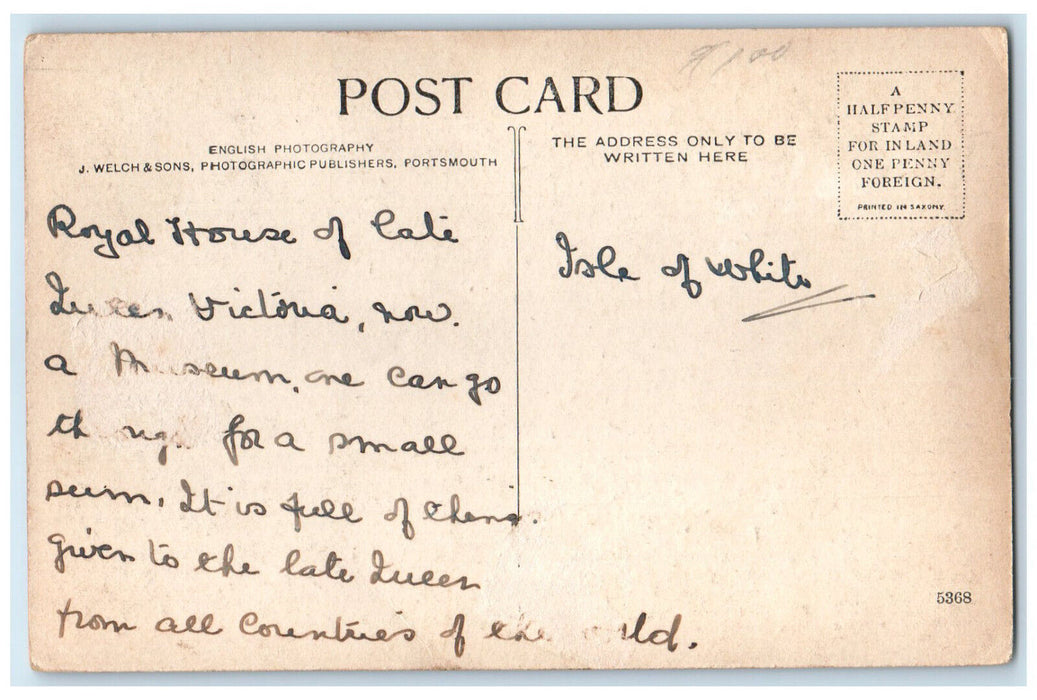 9/100
POST CARD
ENGLISH PHOTOGRAPHY
J. WELCH & SONS, PHOTOGRAPHIC PUBLISHERS, PORTSMOUTH
THE ADDRESS ONLY TO BE
WRITTEN HERE
A
HALFPENNY
STAMP
FOR INLAND
ONE PENNY
FOREIGN.
PRINTED IN SAXONY.
Royal House of late
Queen Victoria, now.
a Museum, one can go
for a small
sum. It is full of
given to the late Queen
from all Countries of the world.
Isle of White
5368